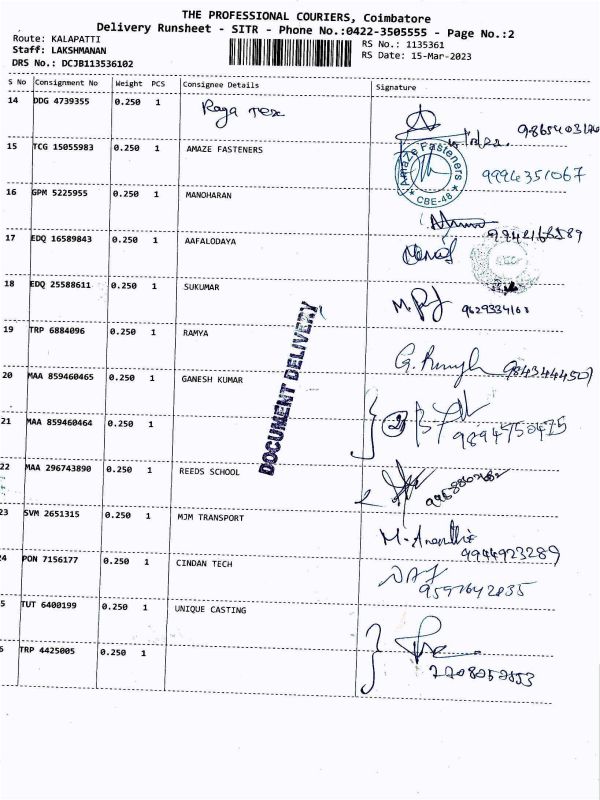 THE PROFESSIONAL COURIERS, Coimbatore
Delivery Runsheet - SITR - Phone No.:0422-3505555 - Page No.:2
Route: KALAPATTI
RS No.: 1135361
Staff: LAKSHMANAN
RS Date: 15-Mar-2023
DRS No.: DCJB113536102
S No Consignment No Weight PCS Consignee Details Signature
14 DDG 4739355 0.250 1 Raga Tex
15 TCG 15055983 0.250 1 AMAZE FASTENERS
Amaze Fasteners
* CBE-48 *
9994351067
16 GPM 5225955 0.250 1 MANOHARAN
17 EDQ 16589843 0.250 1 AAFALODAYA
18 EDQ 25588611 0.250 1 SUKUMAR
9629334168
DOCUMENT DELIVERY
19 TRP 6884096 0.250 1 RAMYA
9843444507
20 MAA 859460465 0.250 1 GANESH KUMAR
21 MAA 859460464 0.250 1
2
9894750475
22 MAA 296743890 0.250 1 REEDS SCHOOL
23 SVM 2651315 0.250 1 MJM TRANSPORT
4944923289
24 PON 7156177 0.250 1 CINDAN TECH
9597642835
5 TUT 6400199 0.250 1 UNIQUE CASTING
6 TRP 4425005 0.250 1